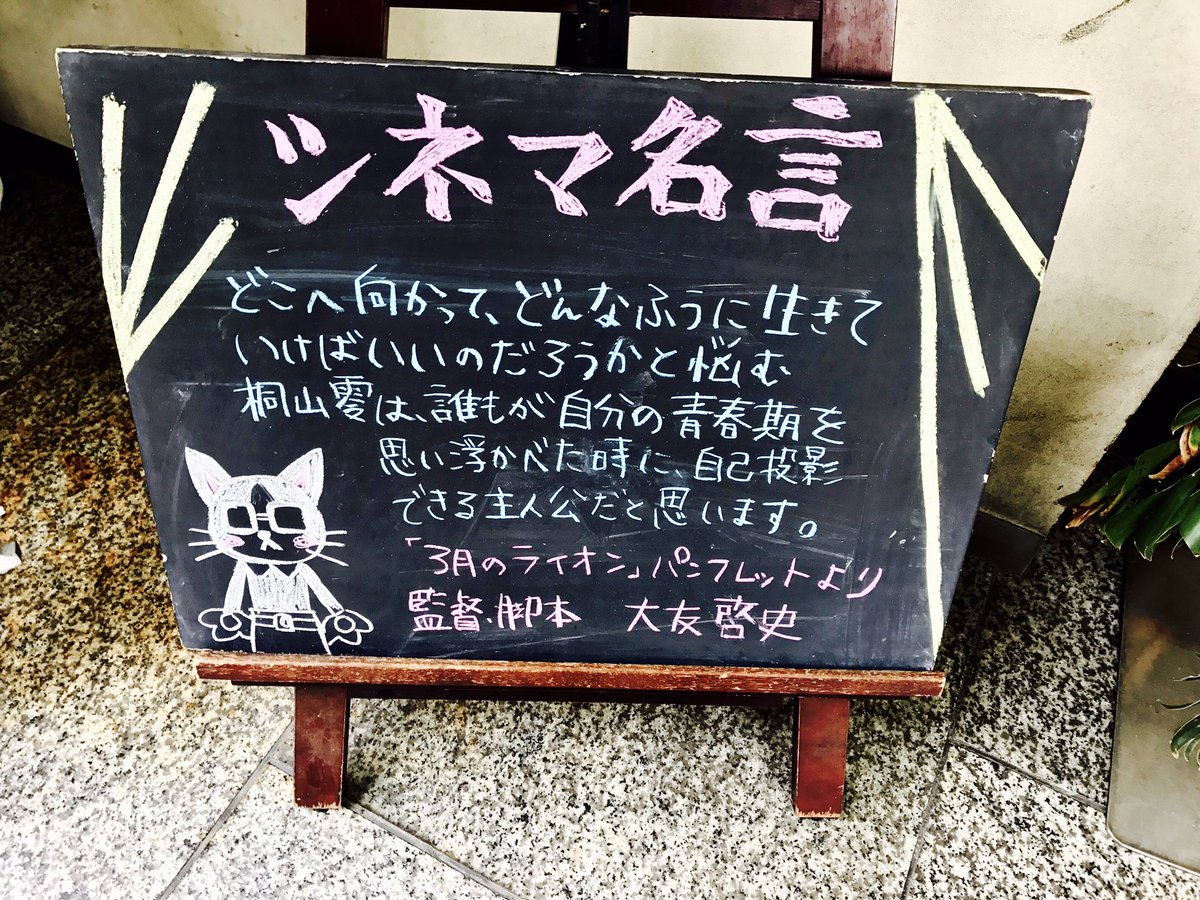 シネマ名言
どこへ向かって、どんなふうに生きて
いけばいいのだろうかと悩む
桐山零は、誰もが自分の青春期を
思い浮かべた時に、自己投影
できる主人公だと思います。
「3月のライオン」パンフレットより
監督・脚本 大友啓史